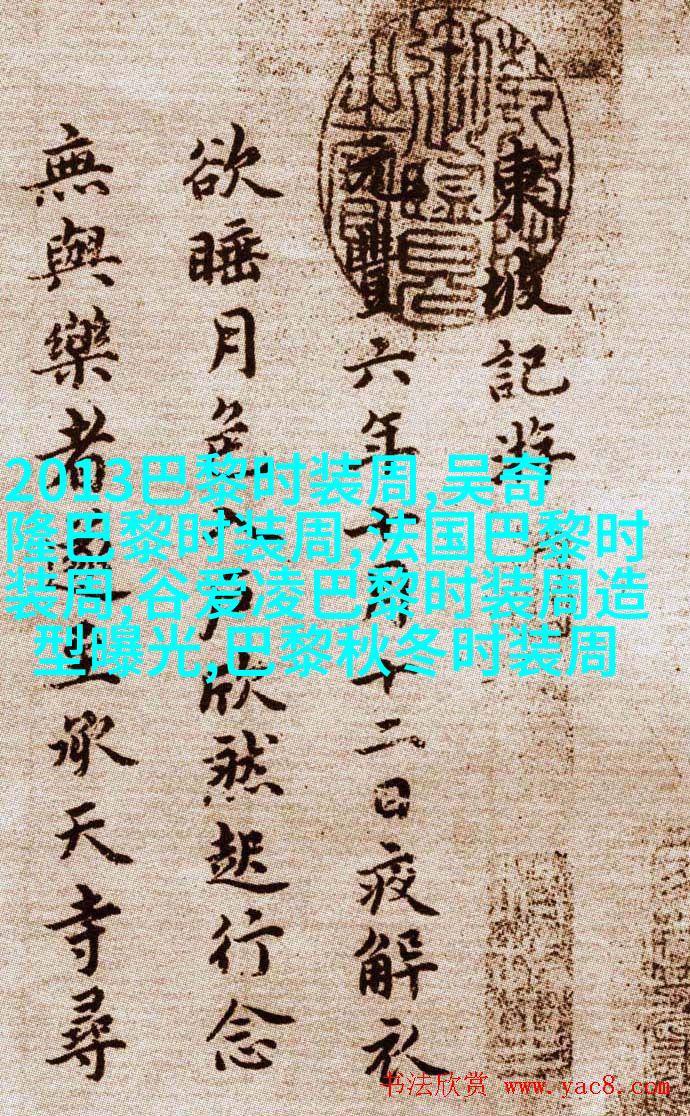 東坡記游
元豐六年十月十二日疫解衣
欲睡月色入户欣然起行念
無與樂者遂至承天寺尋
2013巴黎时装周,吴奇
隆巴黎时装周,法国巴黎时
装周,谷爱凌巴黎时装周造
型曝光,巴黎秋冬时装周
书法欣赏 www.yac8.com